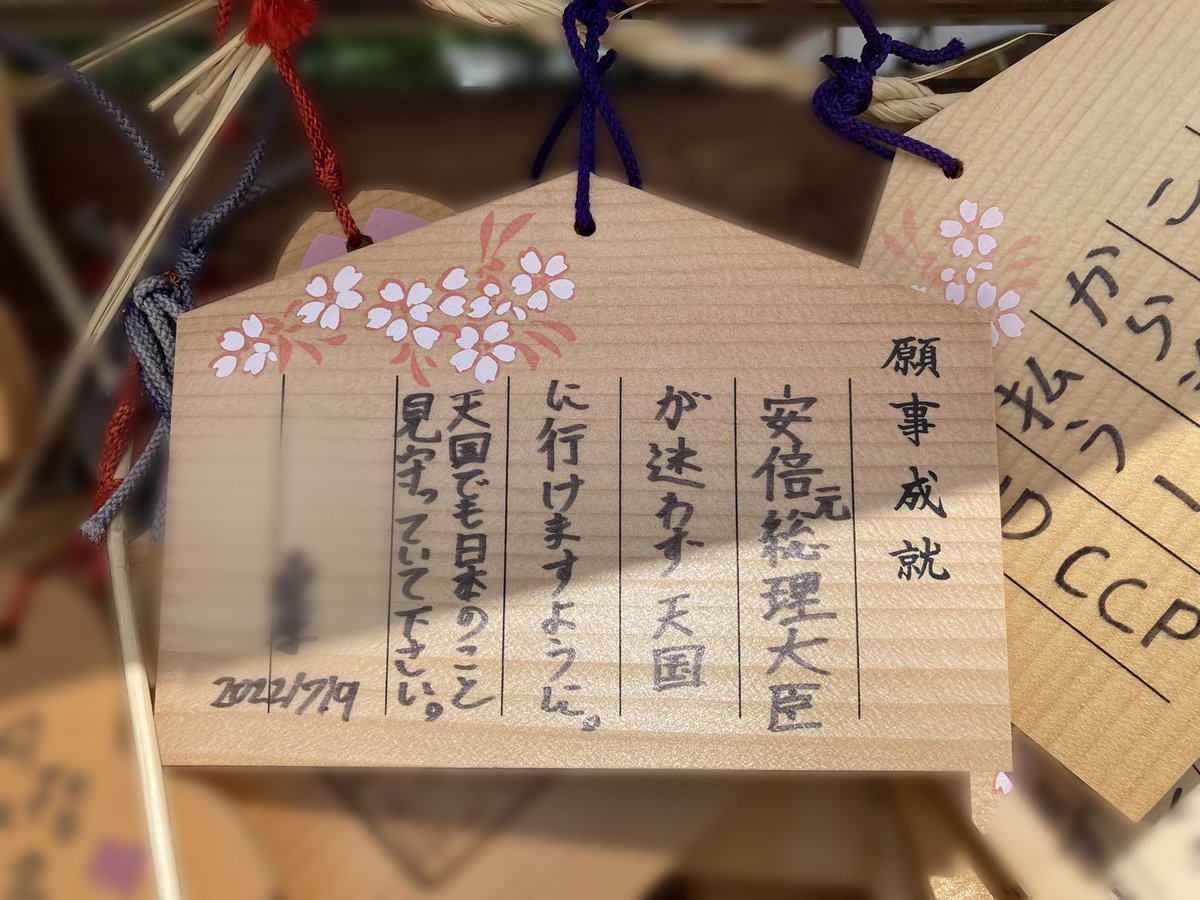 願事成就
安倍元総理大臣
が迷わず天国
に行けますように。
天国でも日本のこと
見守っていて下さい。
2022/7/9
から
払う
CCP